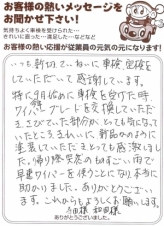 お客様の熱いメッセージを
お聞かせ下さい！
気持ちよく車検を受けられた、
きれいに直った…満足した…などなど
お客様の熱い応援が従業員の元気の元になります！
いつも親切ていねいに車検、定検を
していただいて感謝しています。
特に9月始めに車検を受けた時
ワイパーブレードを交換していただき
さらにさびていた部分がとても気になって
いたところきれいに、新品のように
塗装していただきとても感激しまし
た。帰り際突然の如すごい雨で
早速ワイパーを使うことになり本当に
助かりました。ありがとうござい
ます。これからもよろしくお願いします。
ありがとうございました。